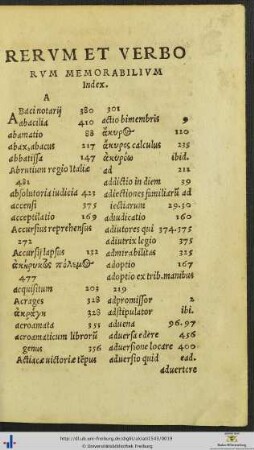 RERVM ET VERBO
RVM MEMORABILIVM
Index.
A
Abacinotarij 380
abacilia 410
abamatio 88
abax, abacus 217
abbatissa 147
Abrutium regio Italiæ
481
absolutoria iudicia 421
accensi 375
acceptilatio 169
Accursius reprehensus
272
Accursij lapsus 152
ἀκήρυκ
477
acquisitum 203
Acrages 328
ἀκράγη 328
acroamata 355
acroamaticum librorū
genus 356
Actiacæ uictoriæ tēpus
301
actio bimembris 9
120
ἄκυρος calculus 235
ἀκυρόω ibid.
ad 211
addictio in diem 39
adiectiones familiarū ad
iectiarum 29.30
adiudicatio 160
adiutores qui 374.375
adiutrix legio 375
admirabilitas 325
adoptio 167
adoptio ex trib. manibus
219
adpromissor 2
adstipulator ibi.
aduena 96.97
aduersa edere 456
aduersione locare 400
aduersio quid ead.
aduertere
http://dl.ub.uni-freiburg.de/diglit/alciati1543/0019
© Universitätsbibliothek Freiburg